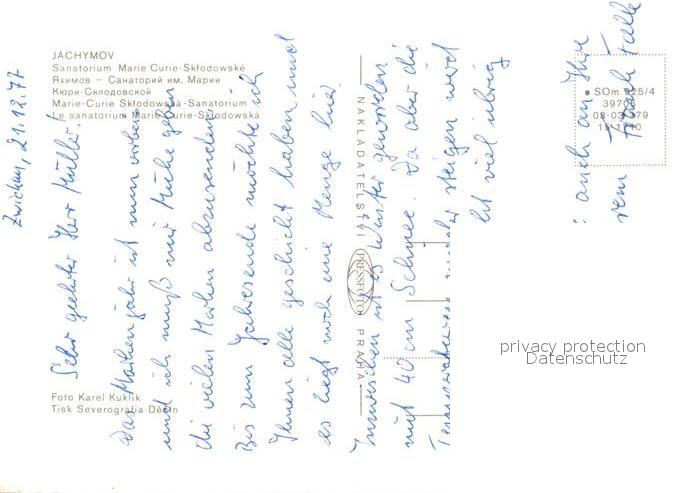 JÁCHYMOV
Sanatorium Marie Curie-Skłodowské
Яхимов — Санаторий им. Марии
Кюри-Склодовской
Marie-Curie Skłodowská-Sanatorium
Le sanatorium Marie Curie-Skłodowská
Foto Karel Kuklík
Tisk Severografia Děčín
NAKLADATELSTVÍ
PRESSFOTO
PRAHA
SOm 925/4
03-03 979
privacy protection
Datenschutz
Zwickau, 21.12.77
Sehr geehrter Herr Müller!
das Markenjahr ist nun vorbei
und ich muß mir Mühe geben
die vielen Marken abzusenden
Bis zum Jahresende möchte ich
Ihnen alle geschickt haben und
es liegt noch eine Menge hier.
Inzwischen ist es Winter geworden
mit 40 cm Schnee. Da aber die
Temperaturen steigen wird
viel übrig
auch an Ihre
Falk